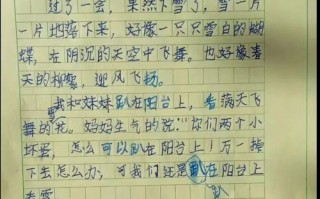 过了一会，果然下雪了，雪一片
一片地落下来，好像一只只雪白的蝴
蝶，在阴沉的天空中飞舞。也好像春
天的柳絮，迎风飞扬。
我和妹妹趴在阳台上，看满天飞
舞的花。妈妈生气的说：“你们两个小
坏蛋，怎么可以趴在阳台上！万一掉
下去怎么办；可我们还是趴在阳台上
看雪
趴